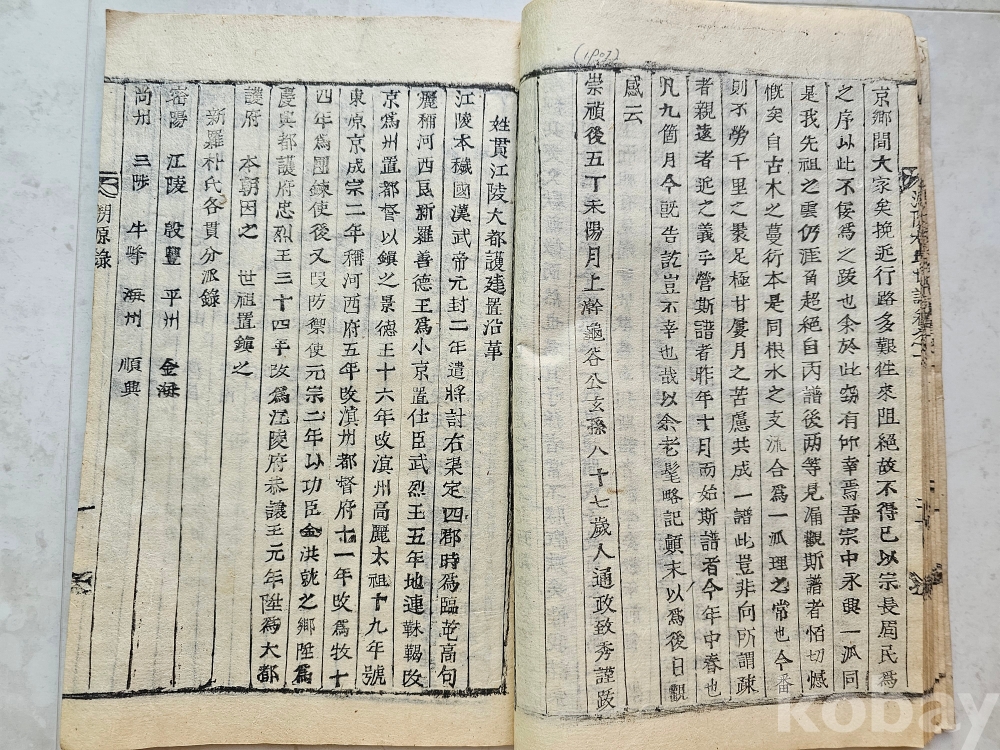 (1907)
京鄕間大家矣挽近行路多艱徃來阻絕故不得已以宗長周民爲
之序以此不侫爲之跋也余於此窃有仰幸焉吾宗中永興一派同
是我先祖之雲仍涯角超絕自丙譜後兩等見漏觀斯譜者怕切憾
慨矣自古木之蔓衍本是同根水之支流合爲一派理之常也今番
則不勞千里之裂足極甘屢月之苦慮共成一譜此豈非向所謂疎
者親遠者近之義乎營斯譜者昨年十月而始斯譜者今年中春也
凡九箇月今旣告訖豈不幸也哉以余老髦略記顚末以爲後日觀
感云
崇禎後五丁未陽月上澣龜谷公玄孫八十七歲人通政致秀謹跋
姓貫江陵大都護建置沿革
江陵本穢國漢武帝元封二年遣將討右渠定四郡時爲臨芚高句
麗稱河西良新羅善德王爲小京置仕臣武烈王五年地連靺鞨改
京爲州置都督以鎭之景德王十六年改溟州高麗太祖十九年號
東原京成宗二年稱河西府五年改溟州都督府十一年改爲牧十
四年爲團練使後又改防禦使元宗二年以功臣金洪就之鄕陞爲
慶興都護府忠烈王三十四年改爲江陵府恭讓王元年陞爲大都
護府 本朝因之 世祖置鎭之
新羅朴氏各貫分派錄
密陽 江陵 殷豐 平州 金海
尚州 三陟 牛峰 海州 順興
朔源錄
一
kobay